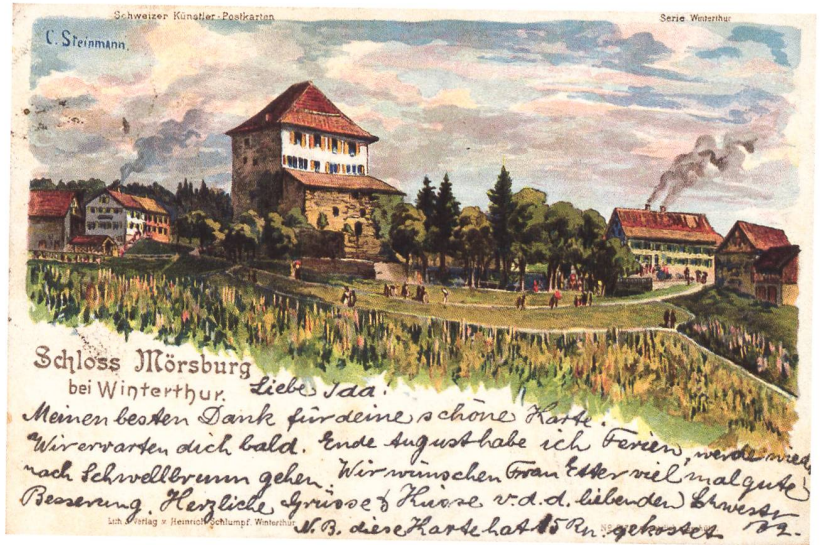 Schweizer Künstler-Postkarten
Serie Winterthur
C. Steinmann.
Schloss Mörsburg
bei Winterthur.
Liebe Ida!
Meinen besten Dank für deine schöne Karte.
Wir erwarten dich bald. Ende August habe ich Ferien, werde wied
nach Schwellbrunn gehen. Wir wünschen Frau Etter viel mal gute
Besserung. Herzliche Grüsse & Küsse v. d. d. liebenden Schwest
Lith. & Verlag v. Heinrich Schlumpf. Winterthur
N.B. diese Karte hat 15 Rp. gekostet